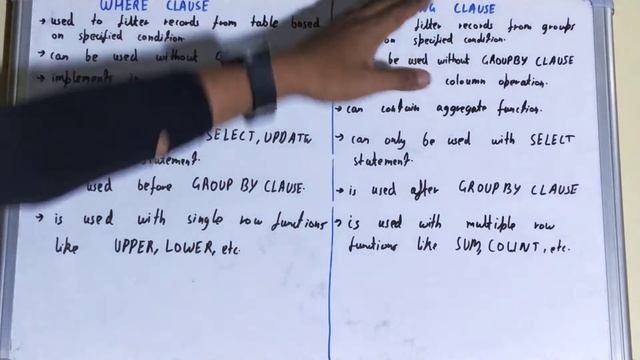 WHERE CLAUSE
→ used to filter records from table based
on specified condition.
→ can be used without
→ implements in
SELECT, UPDATE
statement.
used before GROUP BY CLAUSE.
→ is used with single row functions
like UPPER, LOWER, etc.
CLAUSE
filter records from groups
on specified condition.
be used without GROUPBY CLAUSE
coloumn operation.
→ can contain aggregate function.
→ can only be used with SELECT
statement.
→ is used after GROUP BY CLAUSE
→ is used with multiple row
functions like SUM, COUNT, etc.